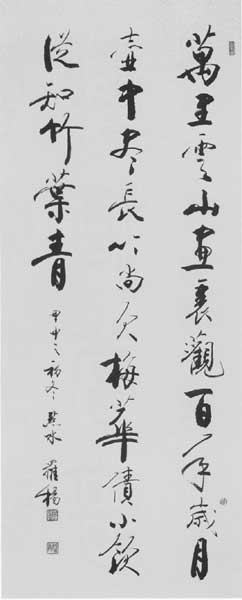 萬里雲山畫裏觀百年歲月
壺中盡長以尚欠梅華債小飲
從知竹葉青
甲申之初冬